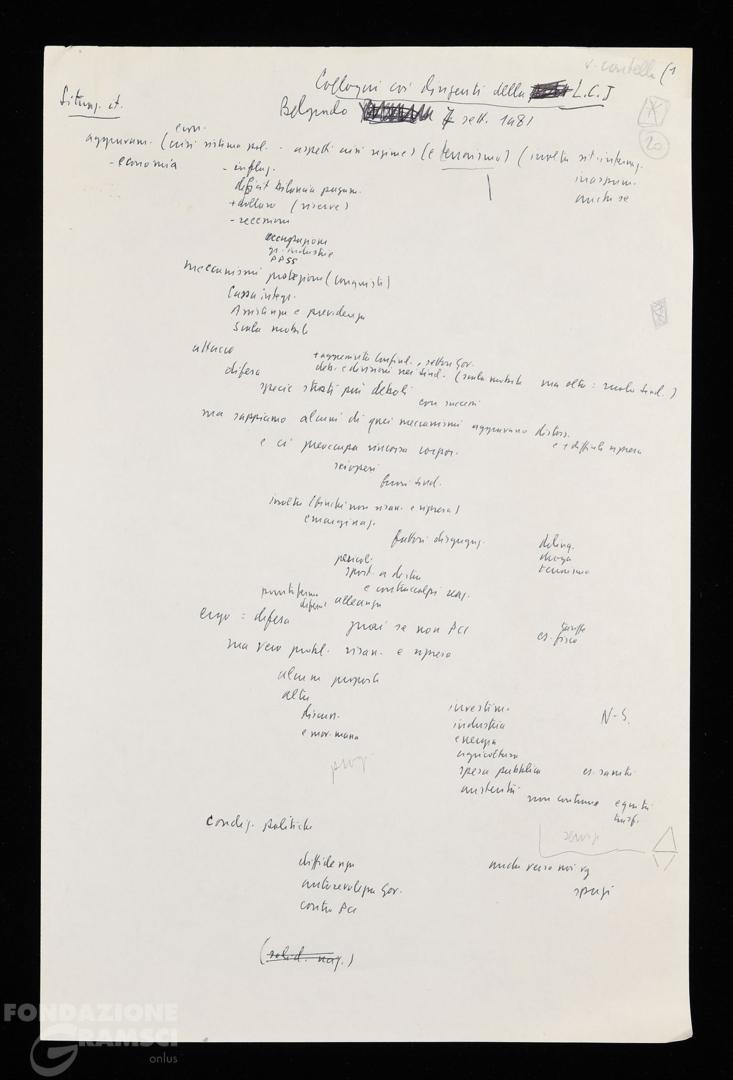 v. cartella (1
Colloqui coi dirigenti della L.C.J
Belgrado 7 sett. 1981
Situaz. it.
20
econ.
aggravam. (crisi sistema pol. - aspetti crisi regime) (e terrorismo) (involuz. sit. internaz.
inasprim.
anche se
- economia
- inflaz.
deficit bilancia pagam.
+ dollaro (riserve)
- recessione
occupazione
gr. industrie
PPSS
meccanismi protezione (conquiste)
Cassa integr.
Assistenza e previdenza
Scala mobile
attacco
+ aggressività Confind., settori Gov.
difesa
deb. e divisioni nei sind. (scala mobile ma altro: ruolo sind.)
specie strati più deboli
con successi
ma sappiamo alcuni di quei meccanismi aggravano distors.
e + difficile ripresa
e ci preoccupa rincorsa corpor.
scioperi
fuori sind.
inoltre (finché non risan. e ripresa)
emarginaz.
fattori disgregaz.
delinq.
droga
terrorismo
pericoli
spost. a destra
e contraccolpi reaz.
alleanza
ergo = difesa
guai se non PCI
tariffe
es. fisco
ma vero probl. risan. e ripresa
alcune proposte
altre
discuss.
e mov. massa
investim.
industria
energia
agricoltura
spesa pubblica
es. sanità
austerità
non contrario
equità
trasf.
N-S.
prog
Condiz. politiche
diffidenza
autorevolezza Gov.
contro PCI
anche verso noi
spazi
(solid. naz.)
FONDAZIONE
GRAMSCI
onlus